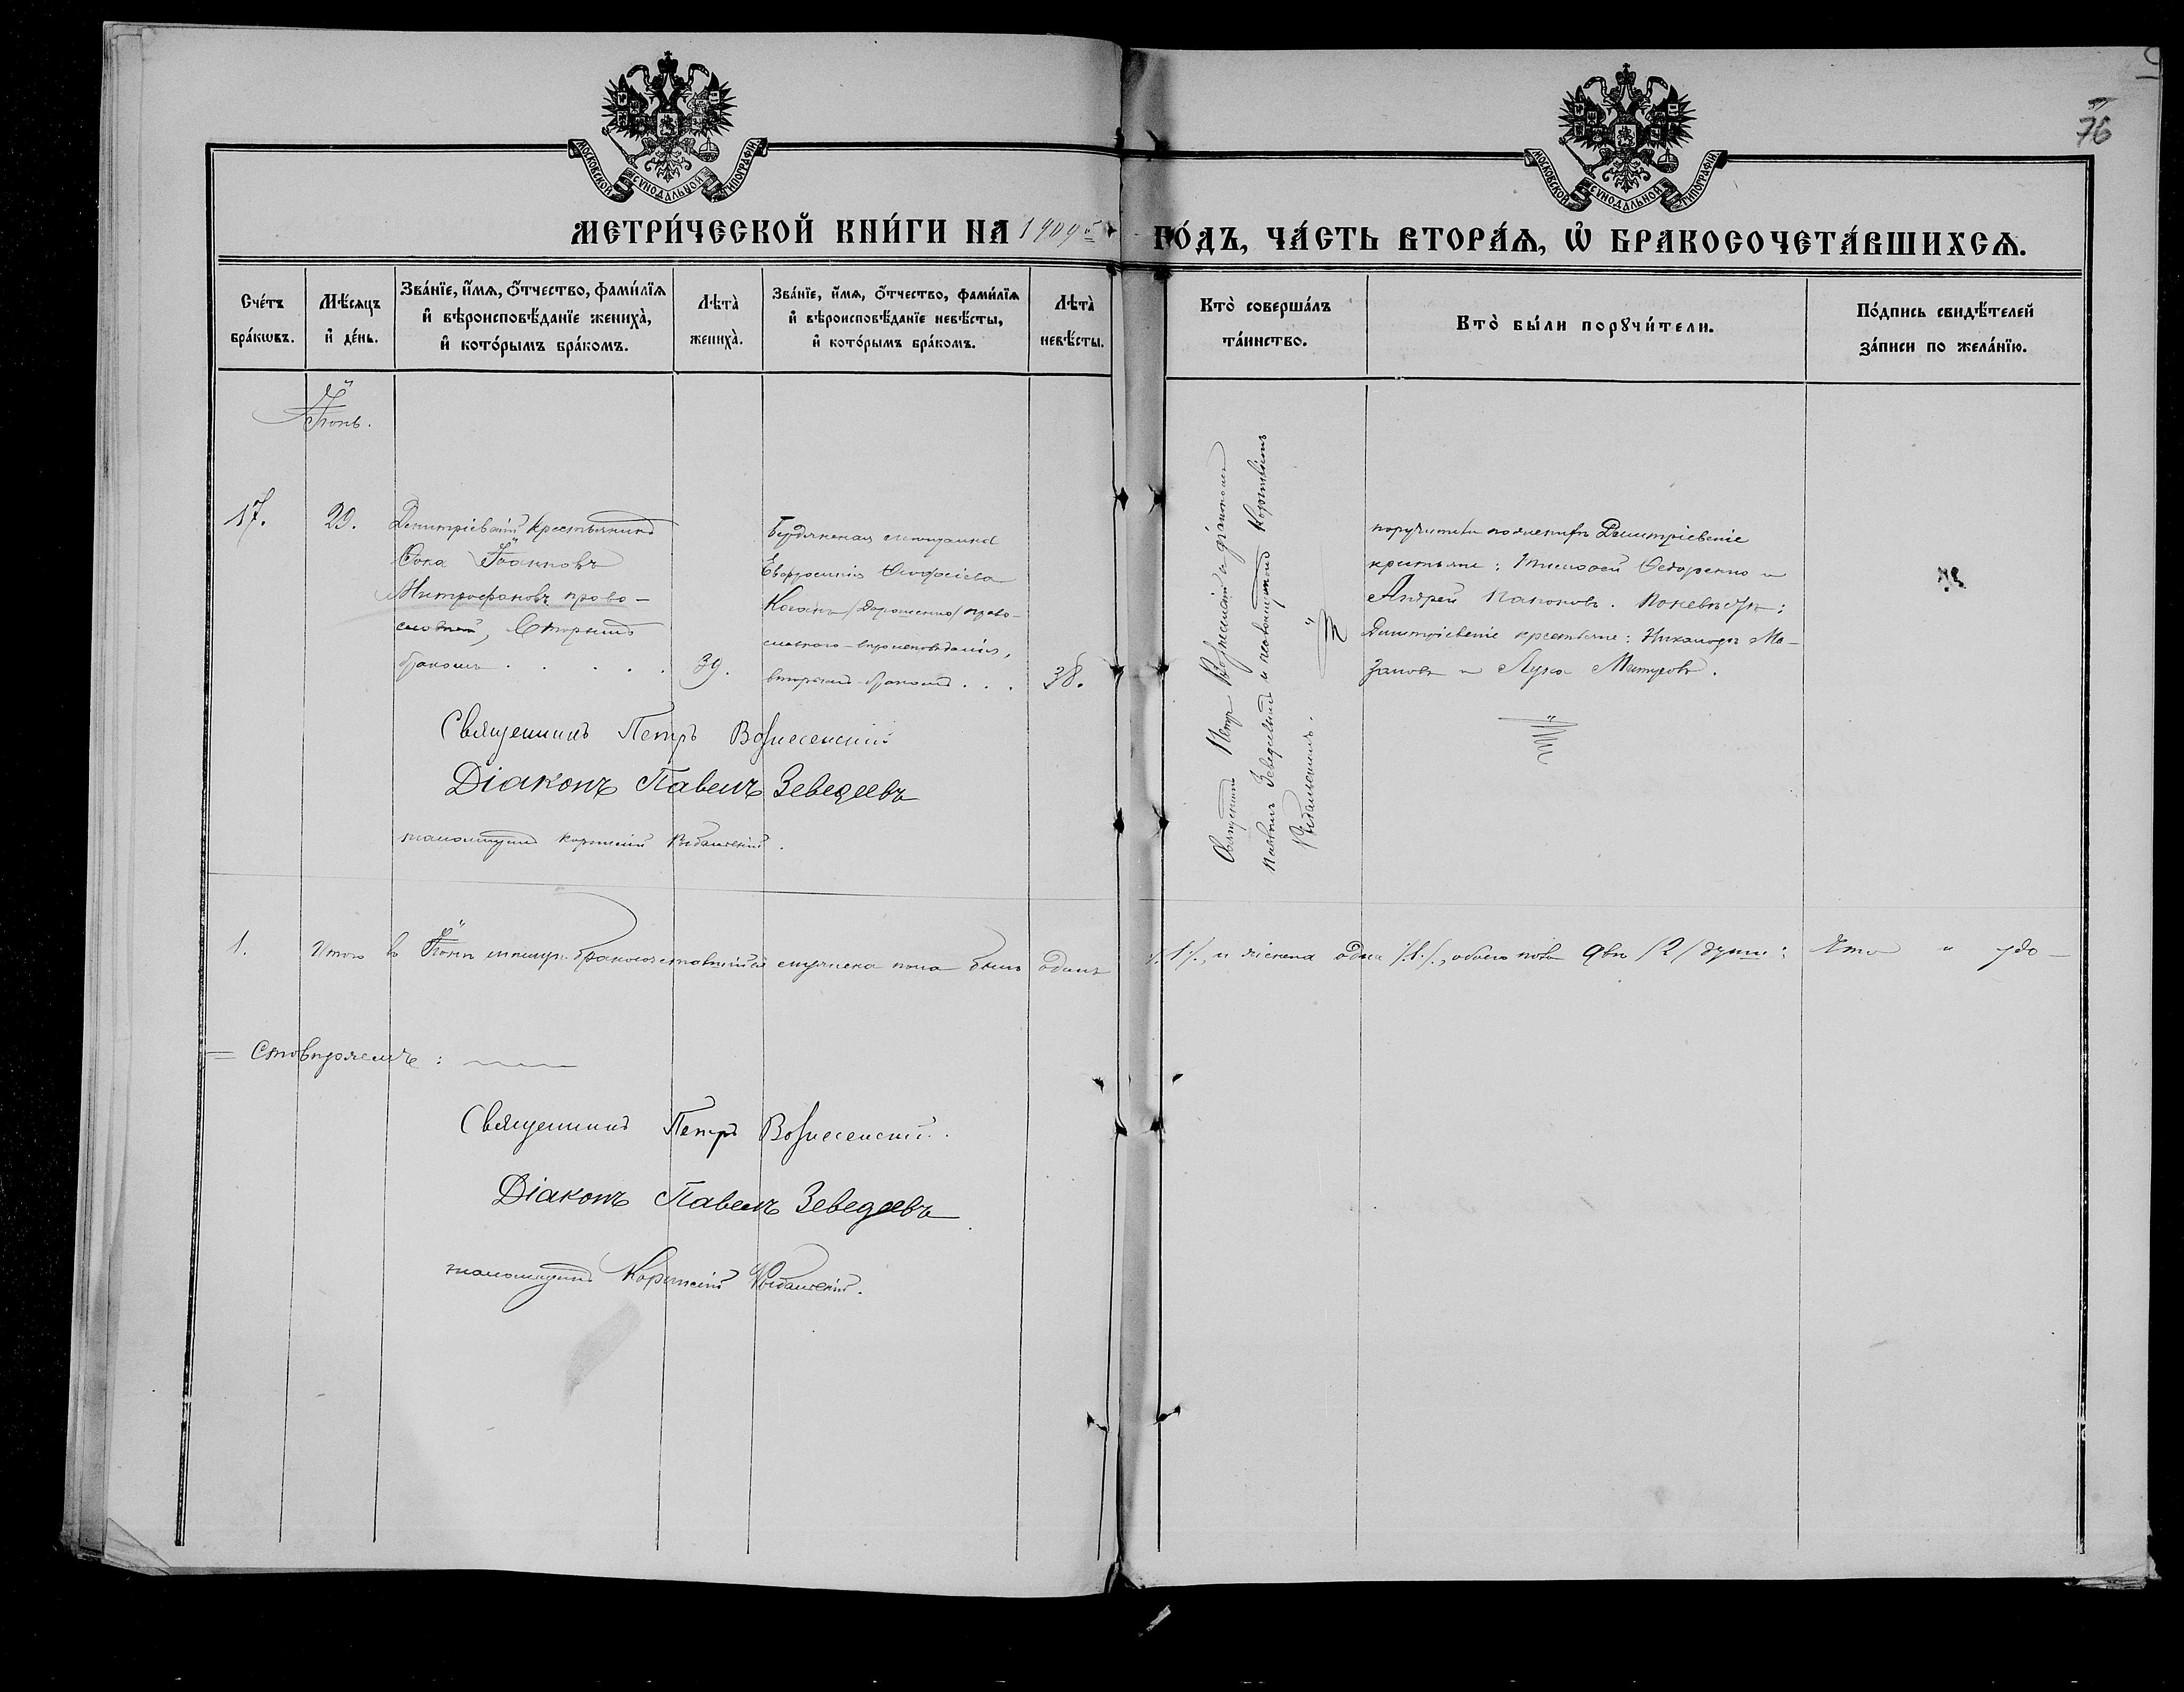 76
МОСКОВСКОЙ СѴНОДАЛЬНОЙ ТИПОГРАФІИ
МОСКОВСКОЙ СѴНОДАЛЬНОЙ ТИПОГРАФІИ
МЕТРИ́ЧЕСКОЙ КНИ́ГИ НА 1909й ГО́ДЪ, ЧА́СТЬ ВТОРА́Ѧ, Ѽ БРАКОСОЧЕТА́ВШИХСѦ.
Сче́тъ бра́кѡвъ.
Мѣ́сяцъ и҆ де́нь.
Зва́нїе, и҆́мѧ, ѻ҆́тчество, фами́лїѧ и҆ вѣроисповѣ́данїе жениха̀, и҆ кото́рымъ бра́комъ.
Лѣта̀ жениха̀.
Зва́нїе, и҆́мѧ, ѻ҆́тчество, фами́лїѧ и҆ вѣроисповѣ́данїе невѣ́сты, и҆ кото́рымъ бра́комъ.
Лѣта̀ невѣ́сты.
Кто̀ соверша́лъ та́инство.
Кто̀ бы́ли порꙋчи́тели.
По́дпись свидѣ́телей за́писи по жела́нїю.
Іюнь.
17.
29.
Димитріевскій крестьянинъ
Ѳока Іоанновъ
Митрофановъ право-
славный, вторымъ
бракомъ . . . . .
39.
Бердянская мещанка
Евфросинія
православного вероисповеданія,
вторымъ бракомъ . . .
38.
Священникъ Петръ Вознесенскій с діакономъ
Павломъ Зеведеевымъ и псаломщикомъ
поручители по женихѣ: Димитріевскіе
крестьяне: Тимоѳей Ѳедоренко и
Андрей . По невѣстѣ:
Димитріевскіе крестьяне: Никаноръ Ма-
 и Лука .
Священникъ Петръ Вознесенскій
Діаконъ Павелъ Зеведеевъ
псаломщикъ
1.
Итого в Іюнѣ бракосочетавшихся мужеска пола былъ одинъ /.1/., и женска одна /.1./, обоего пола двѣ /2/ души: Что удо-
стовѣряемъ:
Священникъ Петръ Вознесенскій.
Діаконъ Павелъ Зеведеевъ
псаломщикъ